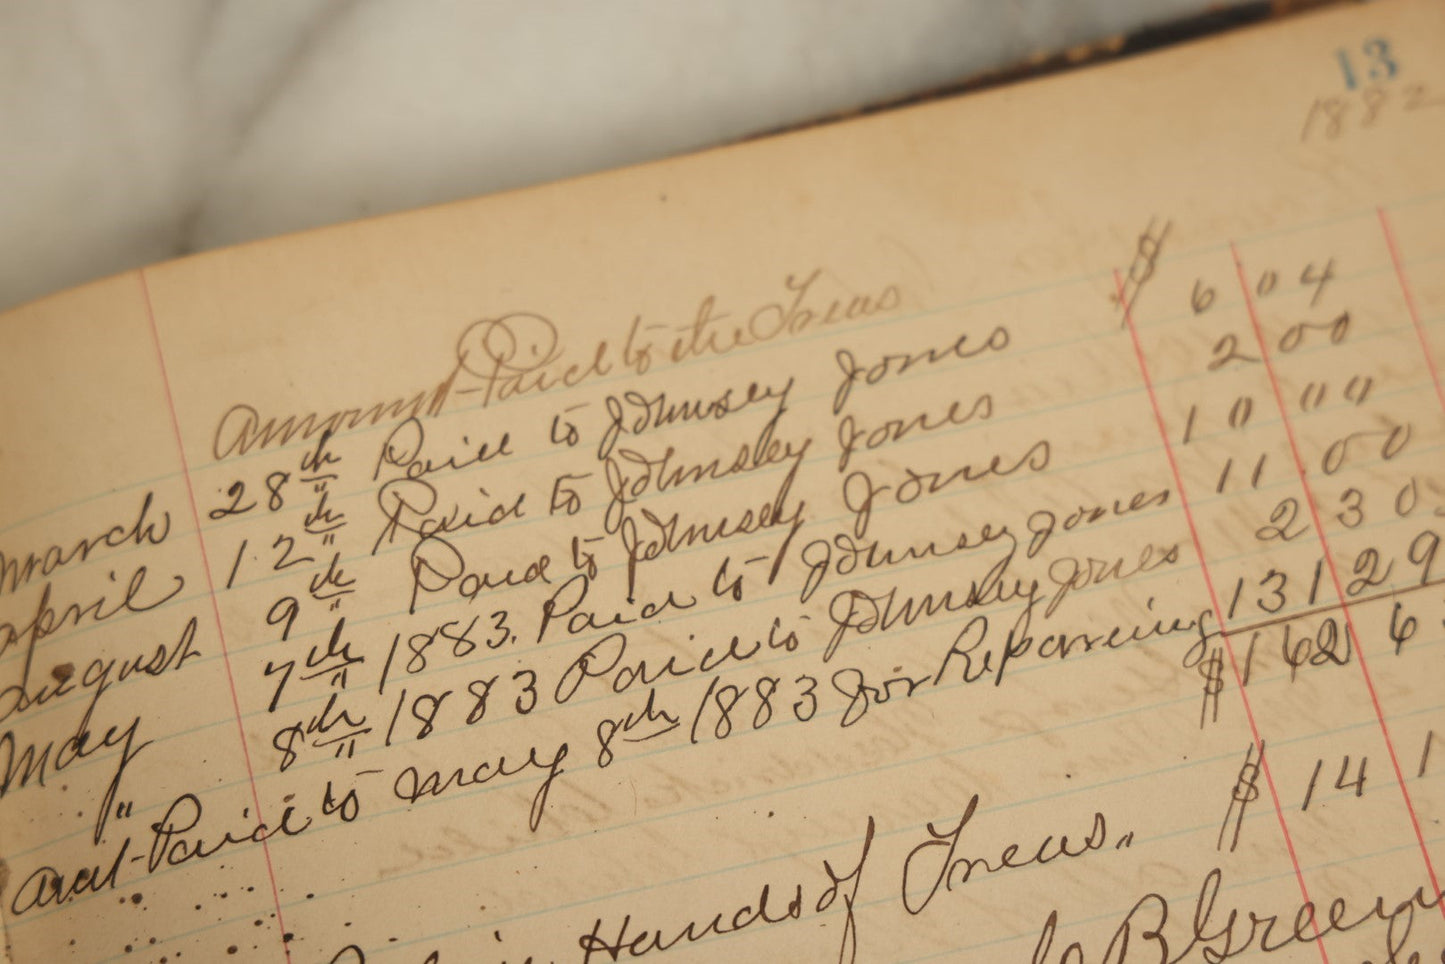 13
1882
Amount Paid to the Treas
March 28th Paid to Johnsey Jones $ 6 04
April 12th Paid to Johnsey Jones 2 00
August 9th Paid to Johnsey Jones 10 00
May 7th 1883. Paid to Johnsey Jones 11 00
" 8th 1883 Paid to Johnsey Jones 2 30
Amt Paid to May 8th 1883 for Reparring 131 29
$ 162 6
in Hands of Treas. $ 14 1
B Green